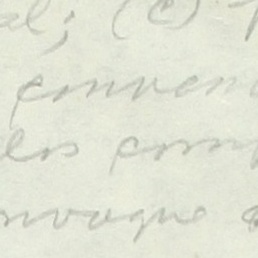 al; (c)
conven
los com
nvoque